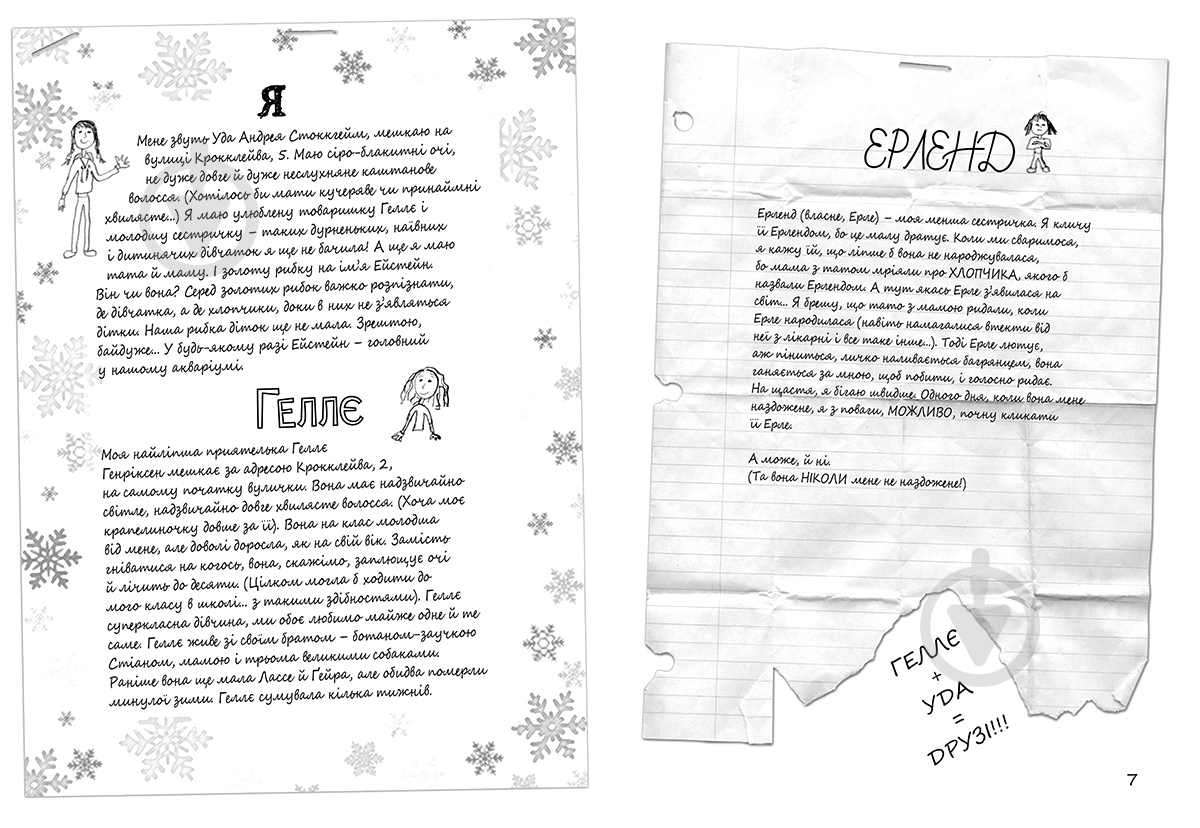 Я
Мене звуть Уда Андрея Стоккгейм, мешкаю на
вулиці Крокклейва, 5. Маю сіро-блакитні очі,
не дуже довге й дуже неслухняне каштанове
волосся. (Хотілось би мати кучеряве чи принаймні
хвилясте...) Я маю улюблену товаришку Геллє і
молодшу сестричку – таких дурненьких, наївних
і дитинячих дівчаток я ще не бачила! А ще я маю
тата й маму. І золоту рибку на ім'я Ейстейн.
Він чи вона? Серед золотих рибок важко розпізнати,
де дівчатка, а де хлопчики, доки в них не з'являться
дітки. Наша рибка діток ще не мала. Зрештою,
байдуже... У будь-якому разі Ейстейн – головний
у нашому акваріумі.
Геллє
Моя найліпша приятелька Геллє
Генріксен мешкає за адресою Крокклейва, 2,
на самому початку вулички. Вона має надзвичайно
світле, надзвичайно довге хвилясте волосся. (Хоча моє
крапелиночку довше за її). Вона на клас молодша
від мене, але доволі доросла, як на свій вік. Замість
гніватися на когось, вона, скажімо, заплющує очі
й лічить до десяти. (Цілком могла б ходити до
мого класу в школі... з такими здібностями). Геллє
суперкласна дівчина, ми обоє любимо майже одне й те
саме. Геллє живе зі своїм братом – ботаном-заучкою
Стіаном, мамою і трьома великими собаками.
Раніше вона ще мала Лассе й Ґейра, але обидва померли
минулої зими. Геллє сумувала кілька тижнів.
ЕРЛЕНД
Ерленд (власне, Ерле) – моя менша сестричка. Я кличу
її Ерлендом, бо це малу дратує. Коли ми сваримося,
я кажу їй, що ліпше б вона не народжувалася,
бо мама з татом мріяли про ХЛОПЧИКА, якого б
назвали Ерлендом. А тут якась Ерле з'явилася на
світ... Я брешу, що тато з мамою ридали, коли
Ерле народилася (навіть намагалися втекти від
неї з лікарні і все таке інше...). Тоді Ерле лютує,
аж піниться, личко наливається багрянцем, вона
ганяється за мною, щоб побити, і голосно ридає.
На щастя, я бігаю швидше. Одного дня, коли вона мене
наздожене, я з поваги, МОЖЛИВО, почну кликати
її Ерле.
А може, й ні.
(Та вона НІКОЛИ мене не наздожене!)
ГЕЛЛЄ
+
УДА
=
ДРУЗІ!!!
7